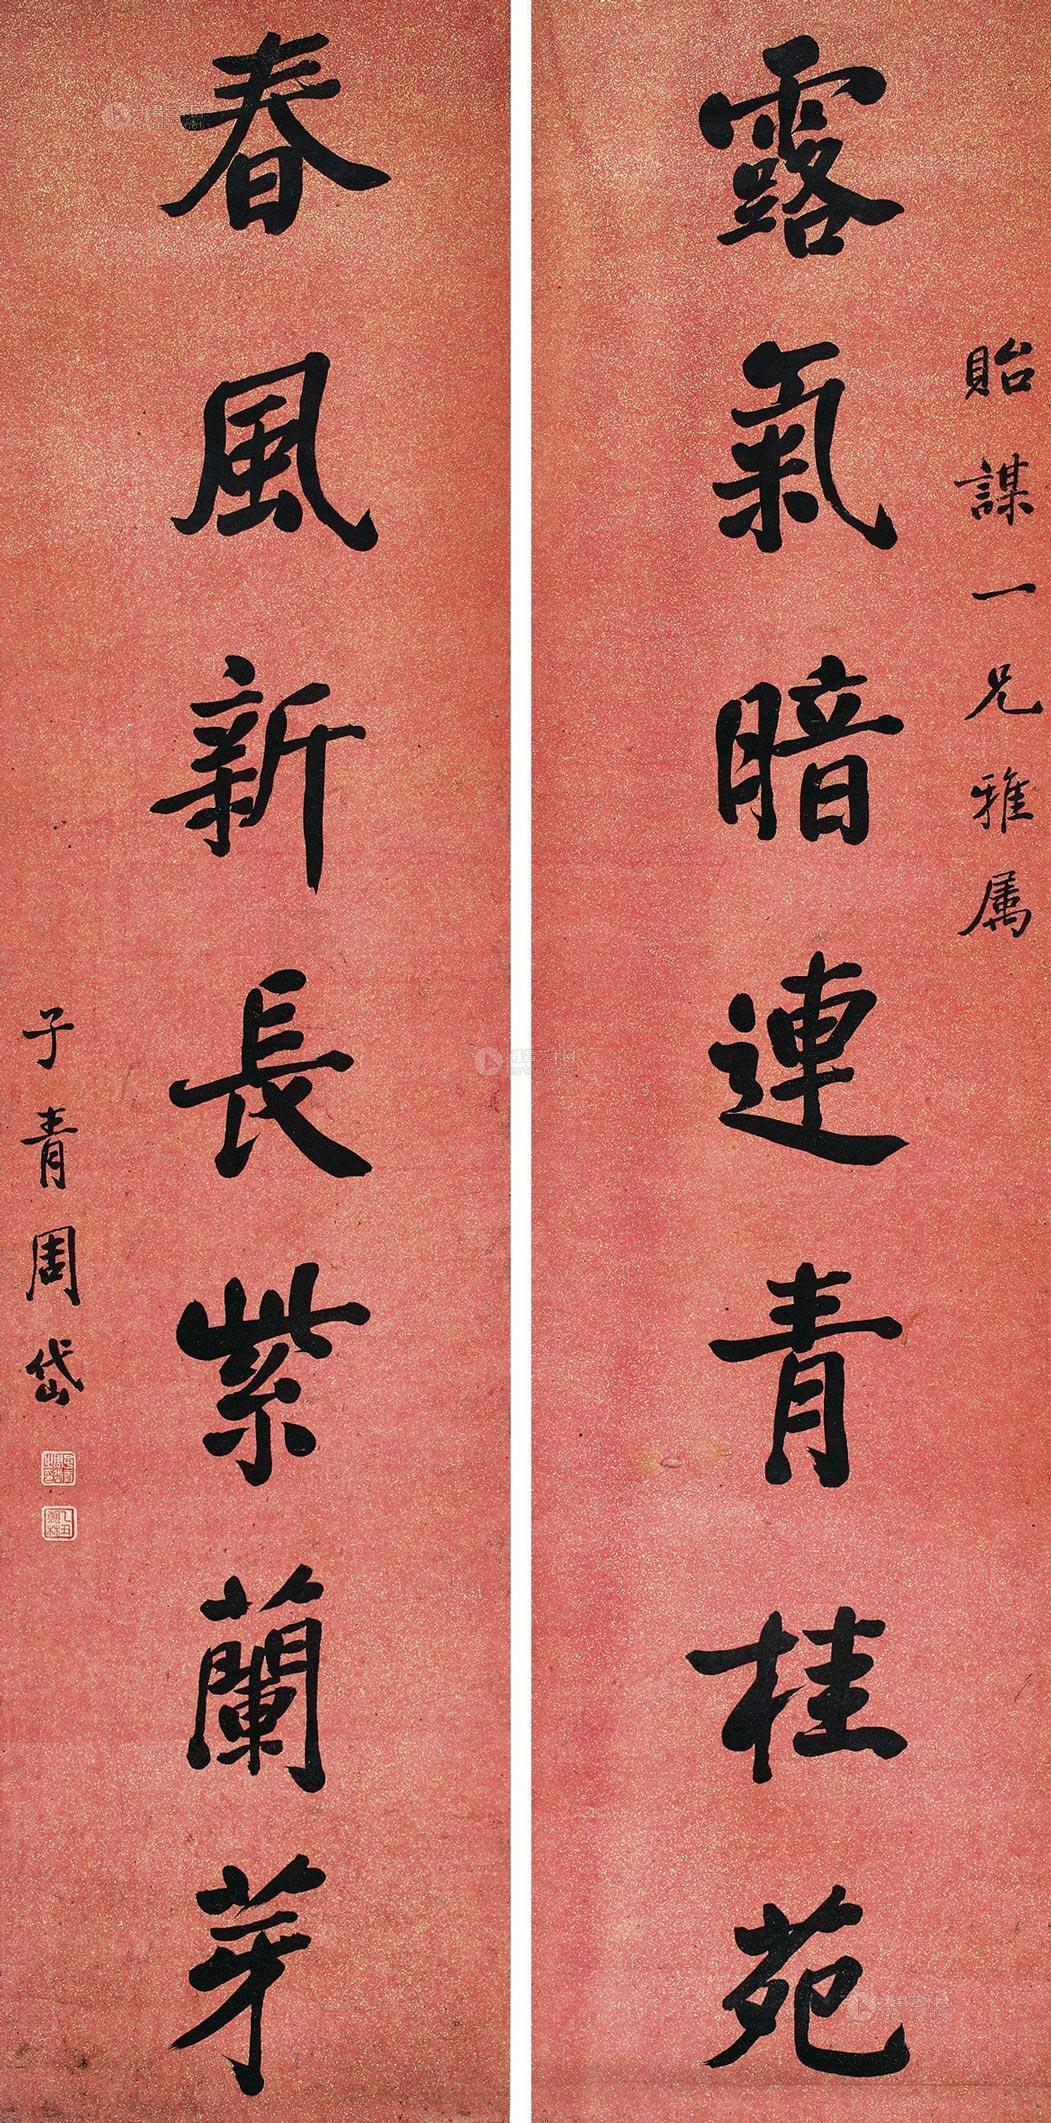 貽謀一兄雅属
露氣暗連青桂苑
春風新長紫蘭芽
子青周岱